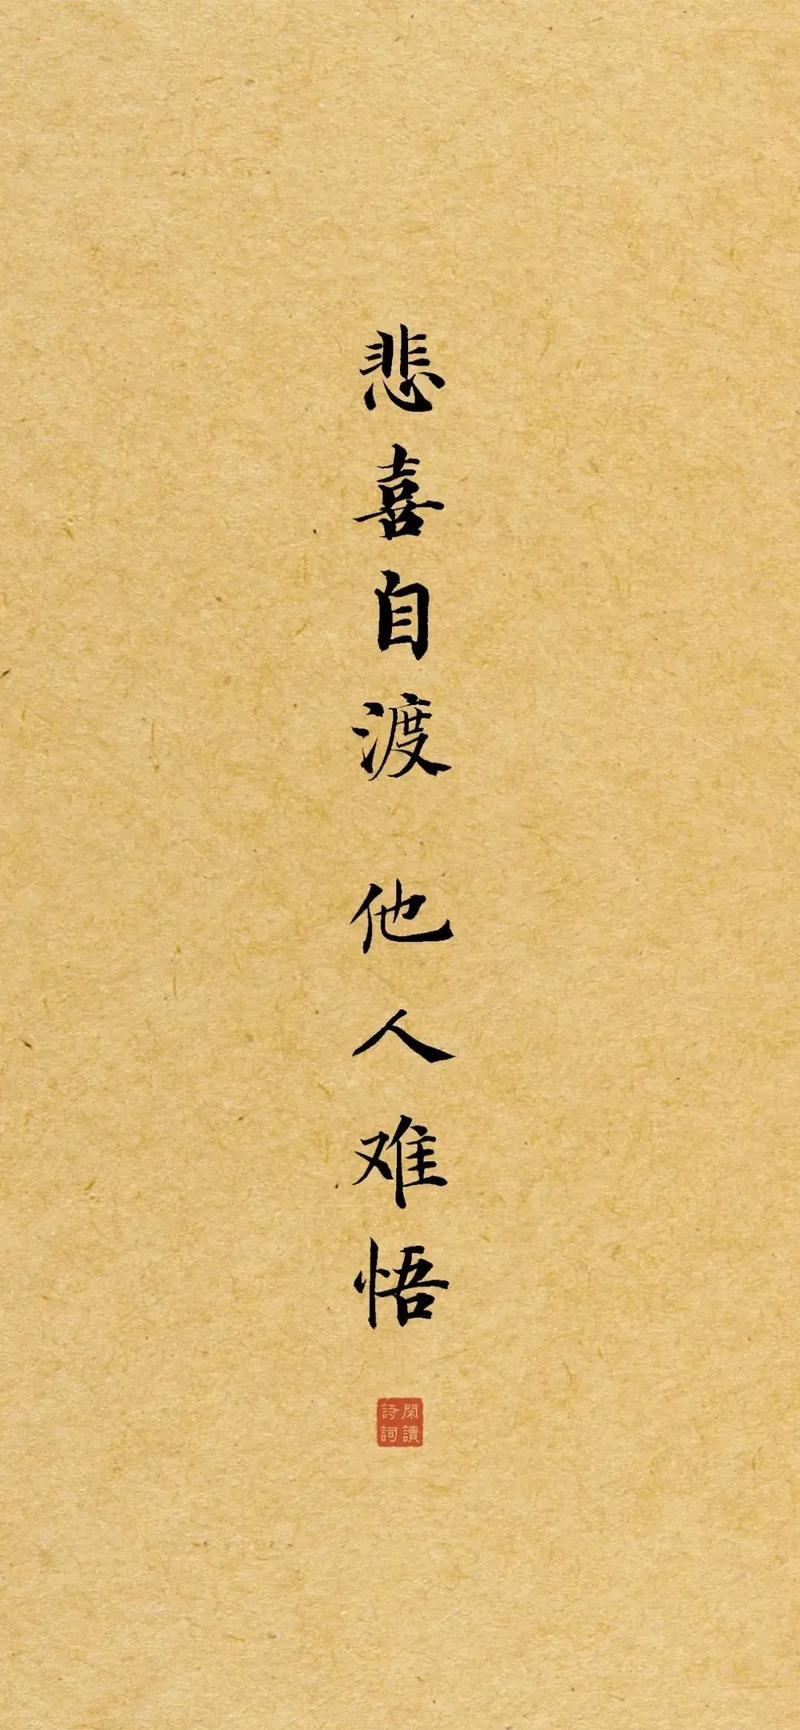 悲喜自渡 他人难悟
閑讀
詩詞